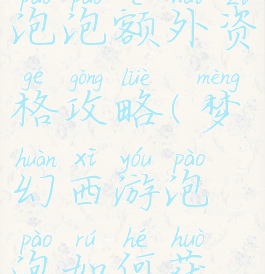 泡泡额外资
gé gōng lüè mèng
格攻略(梦
huàn xī yóu pào
幻西游泡
pào rú hé huò
泡如何获